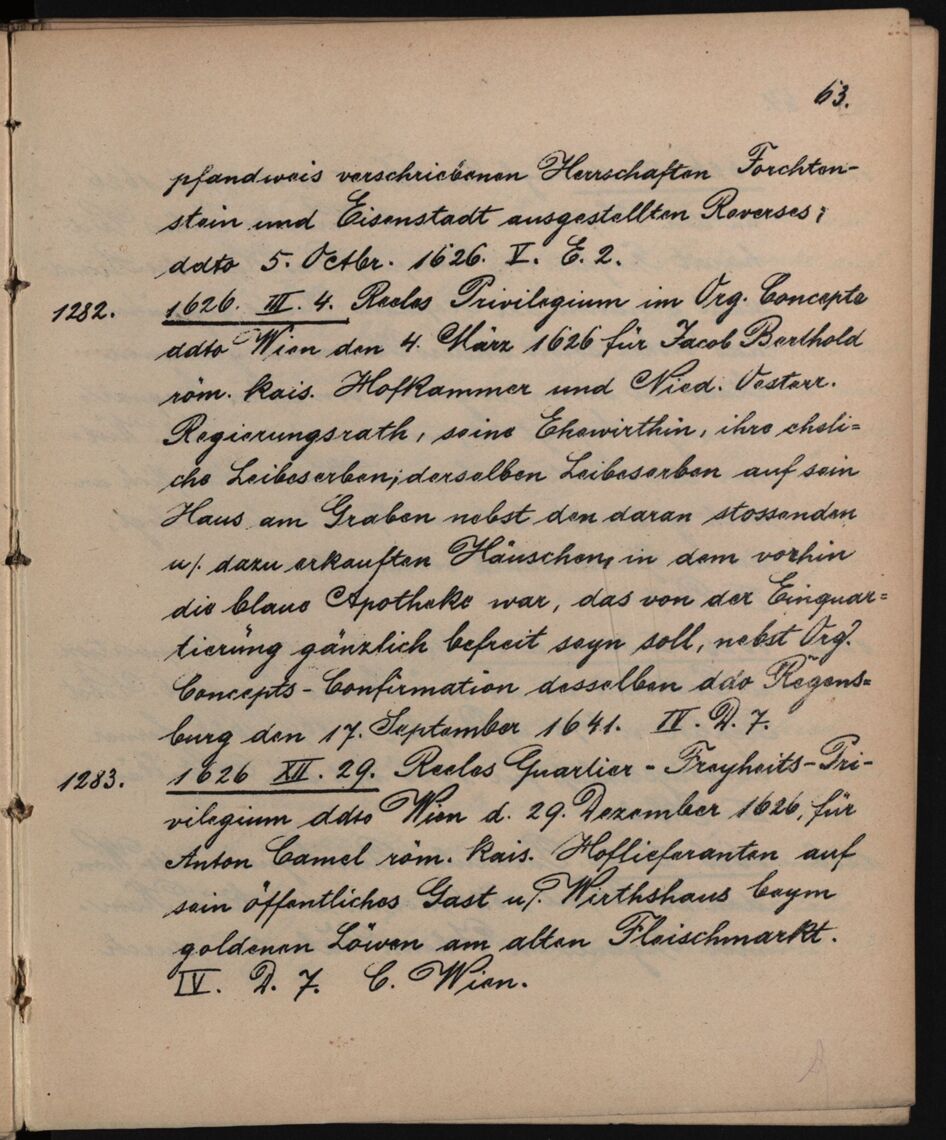 63.
pfandweis verschriebenen Herrschaften Forchten-
stein und Eisenstadt ausgestellten Reverses;
ddto 5. Octbr. 1626. V. E. 2.
1282. 1626. III. 4. Reeles Privilegium im Org. Concepte
ddto Wien den 4. März 1626 für Jacob Berthold
röm. kais. Hofkammer und Nied. Oesterr.
Regierungsrath, seine Ehewirthin, ihre eheli=
che Leibeserben, derselben Leibeserben auf sein
Haus am Graben nebst den daran stossenden
u/. dazu erkauften Häuschen, in dem vorhin
die blaue Apotheke war, das von der Einquar=
tierung gänzlich befreit seyn soll, nebst Org.
Concepts-Confirmation desselben ddo Regens=
burg den 17. September 1641. IV. D. 7.
1283. 1626 XII. 29. Reeles Quartier-Freyheits-Pri-
vilegium ddto Wien d. 29. Dezember 1626, für
Anton Camel röm. kais. Hoflieferanten auf
sein öffentliches Gast u/. Wirthshaus beym
goldenen Löwen am alten Fleischmarkt.
IV. D. 7. C. Wien.